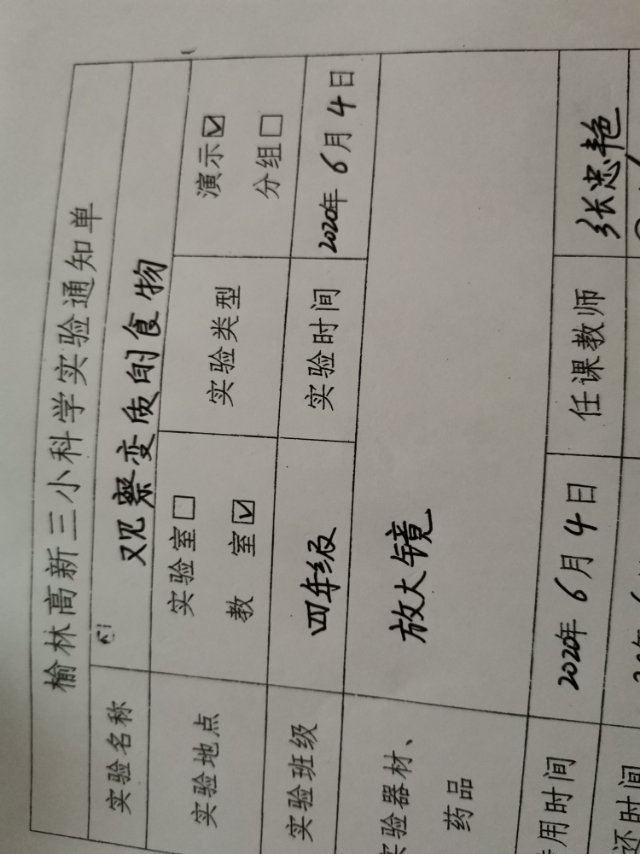 榆林高新三小科学实验通知单
实验名称 观察变质的食物
实验地点 实验室□ 教 室☑ 实验类型 演示☑ 分组□
实验班级 四年级 实验时间 2020年6月4日
实验器材、
药品
放大镜
用时间 2020年6月4日 任课教师 张忠艳
还时间